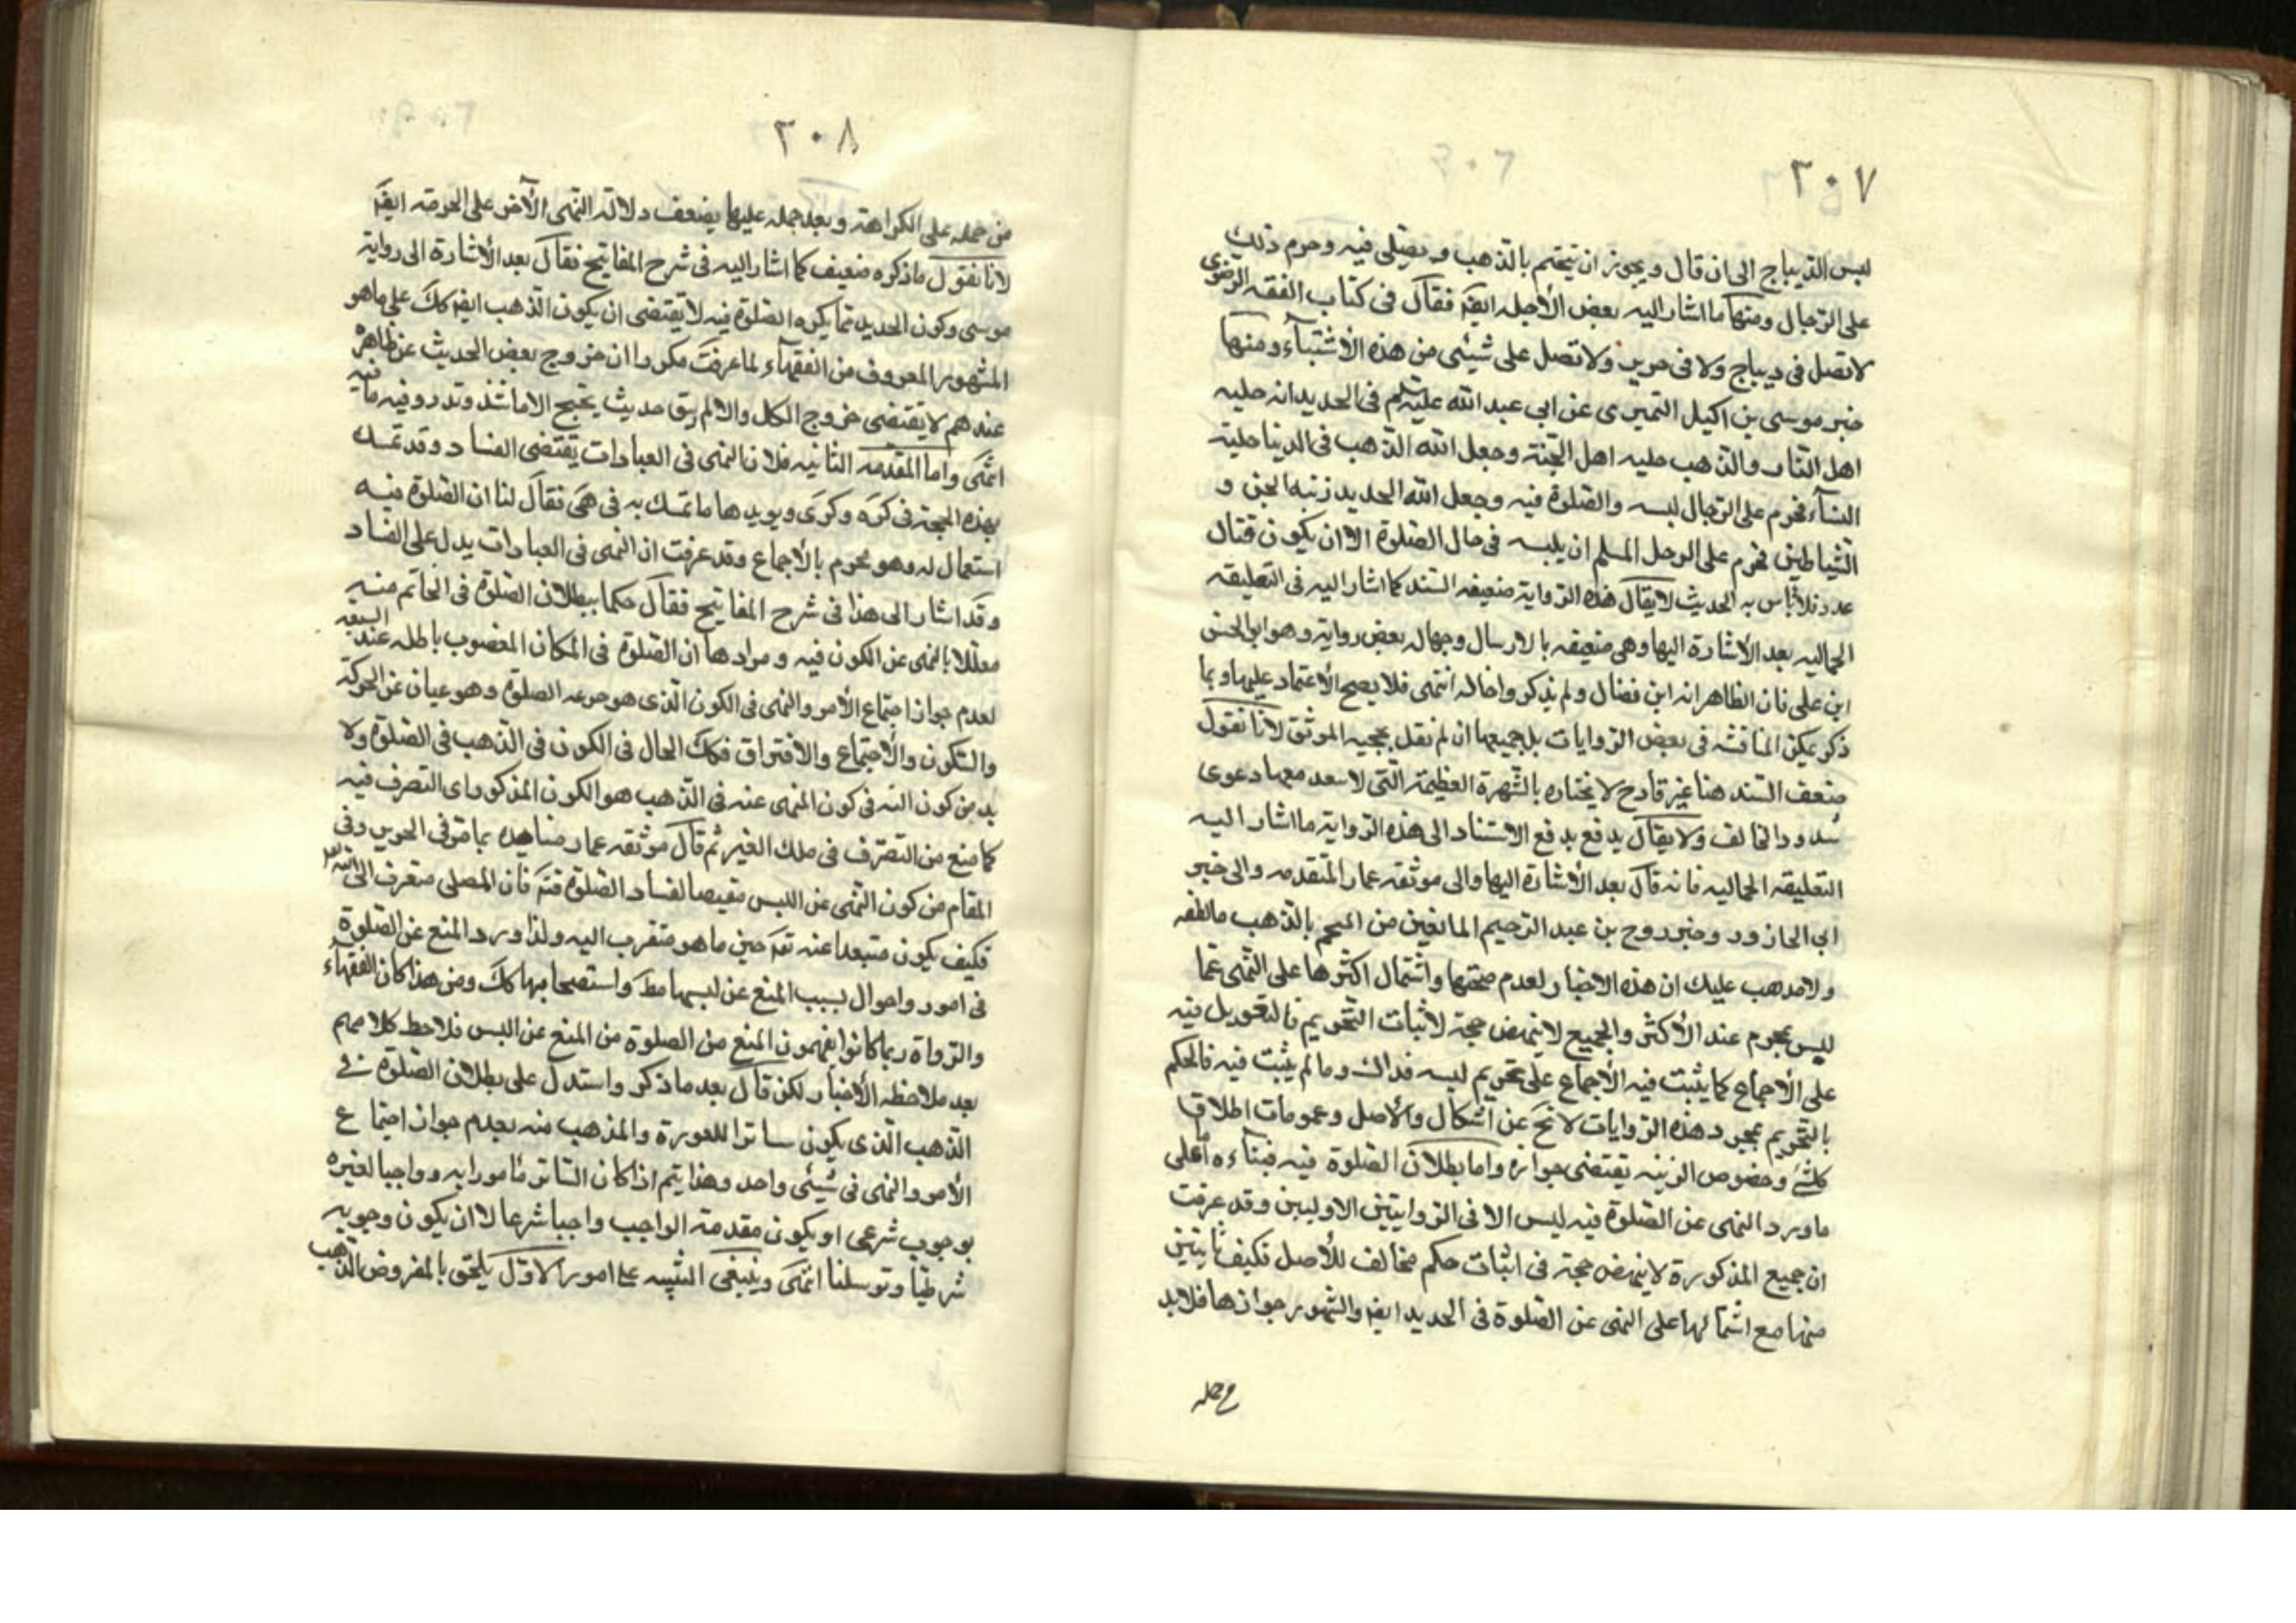 ٢٠٧
لبس الديباج الى ان قال ويجوز ان يتختم بالذهب ويصلى فيه وحرم ذلك
على الرجال ومنها ما اشار اليه بعض الأجله ايضا فقال فى كتاب الفقه الرضوى
لا تصل فى ديباج ولا فى حرير ولا تصل على شيئى من هذه الأشياء ومنها
خبر موسى بن اكيل النميرى عن ابى عبد الله عليه السلم فى الحديد انه حليه
اهل النار والذهب حليه اهل الجنة وجعل الله الذهب فى الدنيا حلية
النسآء فحرم على الرجال لبسه والصلوة فيه وجعل الله الحديد زينه الجن و
الشياطين فحرم على الرجل المسلم ان يلبسه فى حال الصلوة الا ان يكون قتال
عدو فلا بأس به الحديث لا يقال هذه الرواية ضعيفه السند كما اشار اليه فى التعليقه
الجماليه بعد الأشارة اليها وهى ضعيفه بالارسال وجهاله بعض رواية وهو ابى الحسن
ابن على فان الظاهر انه ابن فضال ولم يذكروا حاله انتهى فلا يصح الأعتماد عليها وبما
ذكر يمكن المناقشه فى بعض الروايات بل جميعها ان لم نقل بحجيه الموثق لانا نقول
ضعف السند هنا غير قادح لانجباره بالشهرة العظيمة التى لا يبعد معها دعوى
شذوذ المخالف ولا يقال يدفع الاستناد الى هذه الرواية ما اشار اليه
التعليقه الجماليه فانه قال بعد الأشارة اليها والى موثقه عمار المتقدمه والى خبر
ابى الجارود وخبر روح بن عبد الرحيم المانعين من التختم بالذهب ما لفظه
ولا يذهب عليك ان هذه الاخبار لعدم صحتها واشتمال اكثرها على النهى عما
ليس بمحرم عند الأكثر والجميع لا ينهض حجة لاثبات التحريم فالتعويل فيه
على الأجماع كما يثبت فيه الأجماع على تحريم لبسه فذاك وما لم يثبت فيه فالحكم
بالتحريم بمجرد هذه الروايات لا يخ عن اشكال والأصل وعمومات اطلاق
كلشئ وخصوص الزينه يقتضى جوازه واما بطلان الصلوة فيه فبناءه على
ما ورد النهى عن الصلوة فيه ليس الا فى الروايتين الاوليين وقد عرفت
ان جميع المذكورة لا ينهض حجة فى اثبات حكم مخالف للأصل فكيف باثنين
منها مع اشتمالها على النهى عن الصلوة فى الحديد ايضا والمشهور جوازها فلا بد
٢٠٨
من حمله على الكراهة وبعد حمله عليها يضعف دلالة النهى الآخر على الحرمه ايضا
لانا نقول ما ذكره ضعيف كما اشار اليه فى شرح المفاتيح فقال بعد الأشارة الى رواية
موسى وكون الحديد مما يكره الصلوة فيه لا يقتضى ان يكون الذهب ايضا كك على ما هو
المشهور المعروف من الفقهاء لما عرفت مكررا ان خروج بعض الحديث عن ظاهره
عندهم لا يقتضى خروج الكل والا لم يبق حديث يحتج الا ما شذ وندر وفيه ما فيه
انتهى واما المقدمه الثانيه فلان النهى فى العبادات يقتضى الفساد وقد تمسك
بهذه الحجة فى كره وكرى ويويدها ما تمسك به فى هى فقال لنا ان الصلوة فيه
استعمال له وهو محرم بالأجماع وقد عرفت ان النهى فى العبادات يدل على الفساد
وقد اشار الى هذا فى شرح المفاتيح فقال حكما ببطلان الصلوة فى الخاتم منه
معللا بالنهى عن الكون فيه ومرادها ان الصلوة فى المكان المغصوب باطله عند الشيعه
لعدم جواز اجتماع الأمر والنهى فى الكون الذى هو جزء الصلوة وهو عبارة عن الحركة
والسكون والأجتماع والافتراق فكك الحال فى الكون فى الذهب فى الصلوة ولا
بد من كون النهى عنه فى الذهب هو الكون المذكور اى التصرف فيه
كما منع من التصرف فى ملك الغير ثم قال موثقه عمار بما مر فى الحرير وفى
المقام من كون النهى عن اللبس مقتضيا لفساد الصلوة فتم فان المصلى متقرب الى الله تعالى
فكيف يكون متبعدا عنه تعم حين ما هو متقرب اليه ولذا ورد المنع عن الصلوة
فى امور واحوال بسبب المنع عن لبسها مط واستصحابها كك ومن هذا كان الفقهاء
والرواة ربما كانوا يفهمون المنع من الصلوة من المنع عن اللبس فلاحظ كلامهم
بعد ملاحظه الأخبار لكن قال بعد ما ذكر واستدل على بطلان الصلوة فى
الذهب الذى يكون ساترا للعورة والمذهب منه بعدم جواز اجتماع
الأمر والنهى فى شيئى واحد وهذا يتم اذا كان الساتر مأمورا به وواجبا لغيره
بوجوب شرعى او يكون مقدمة الواجب واجبا شرعا لا ان يكون وجوبه
شرطيا وتوسلنا انتهى وينبغى التنبيه على امور الاول يلحق بالمفروض الذهب